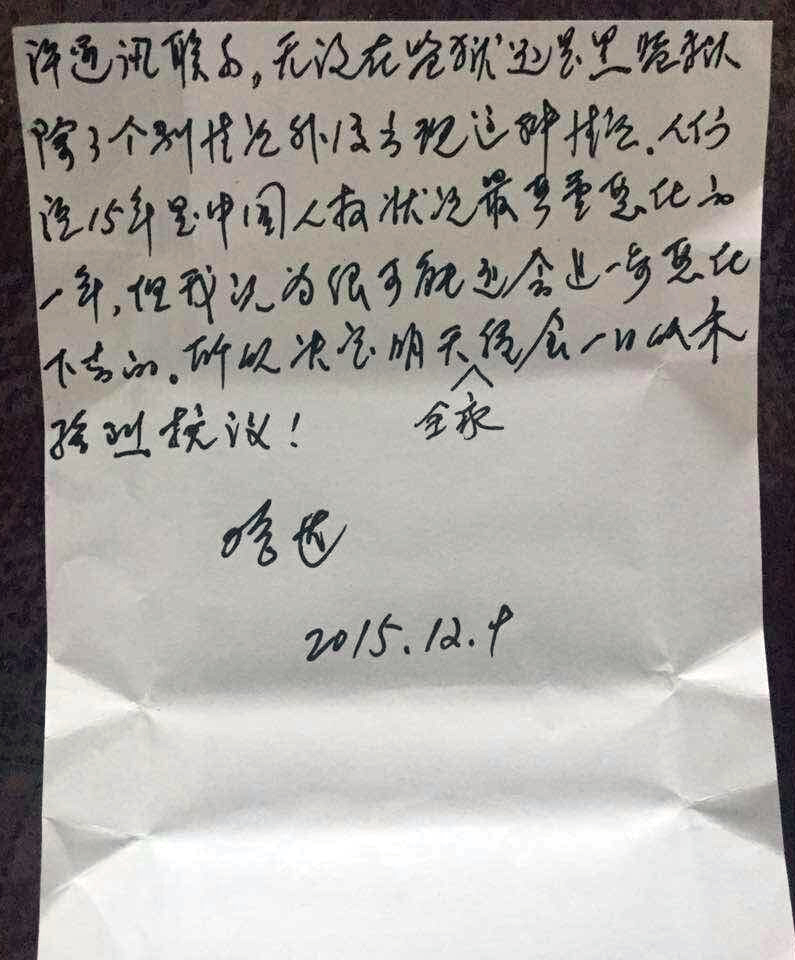 许通讯联系,无论在监狱还是黑监狱
除了个别情况外没出现这种情况。人们
说15年是中国人权状况最严重恶化的
一年,但我认为很可能还会进一步恶化
下去的。所以决定明天绝食一日以示
强烈抗议!
哈达
2015.12.9